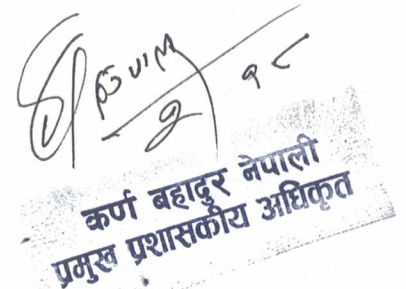 २ १८
कर्ण बहादुर नेपाली
प्रमुख प्रशासकीय अधिकृत